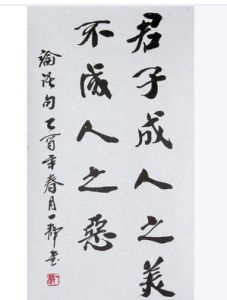 君子成人之美
不成人之惡
論語句乙酉年春月一靜書